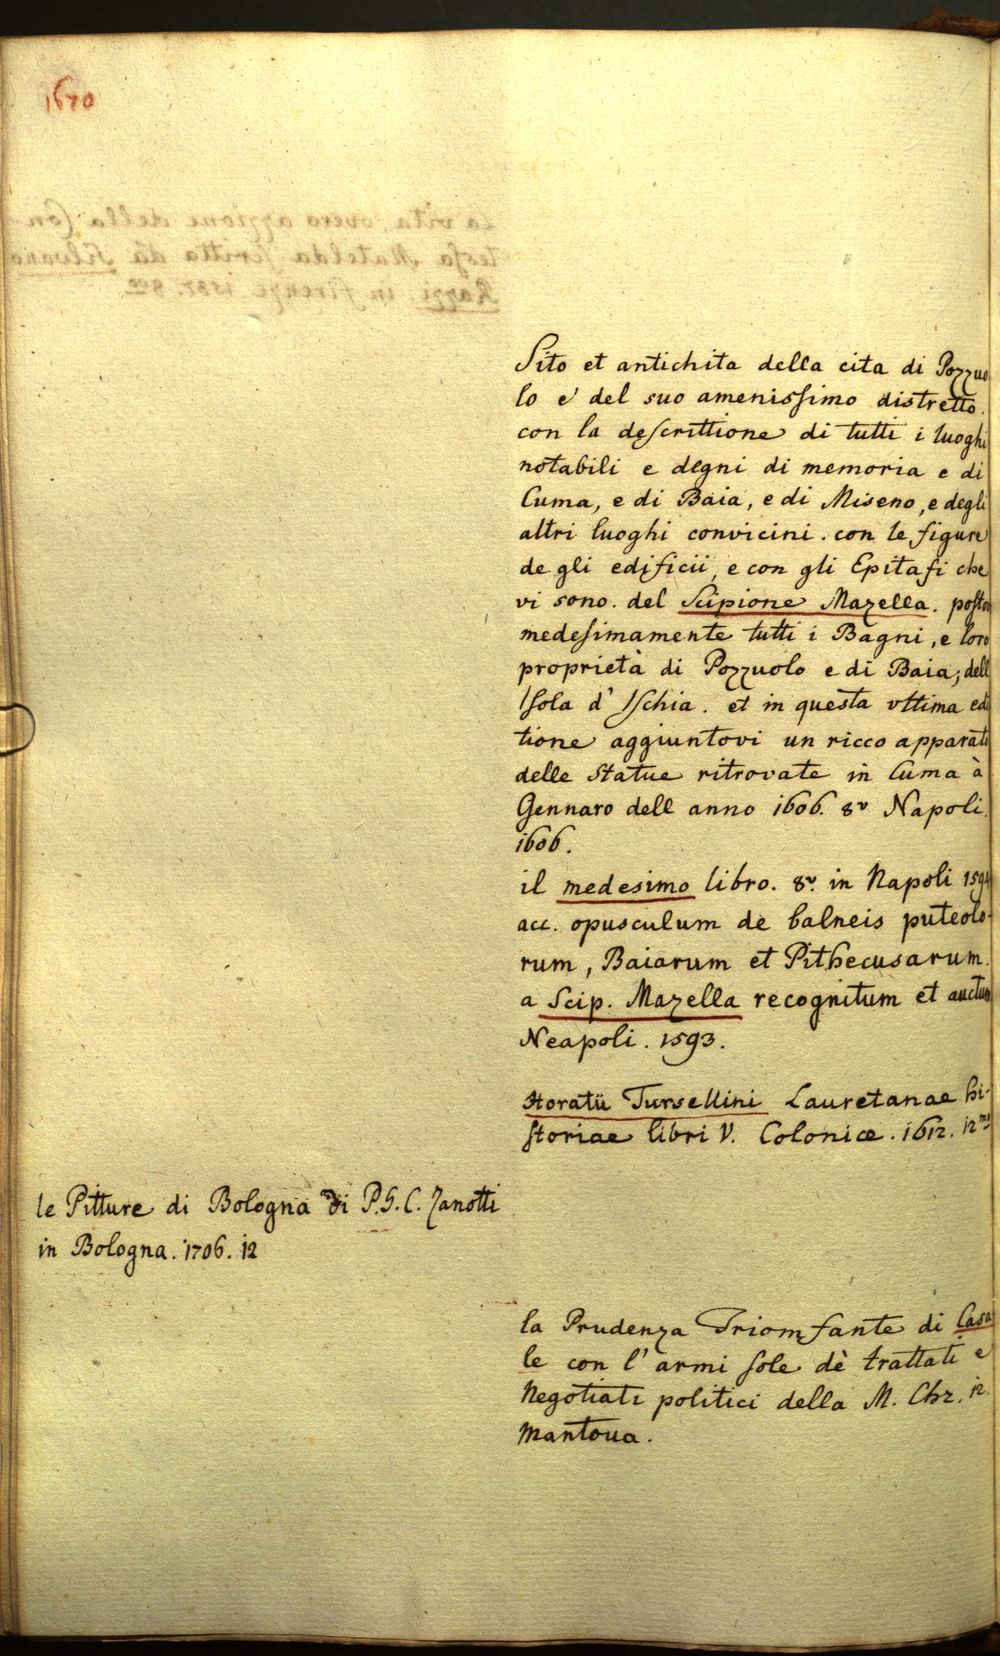 1670
Sito et antichita della cita di Pozzuo
lo e' del suo amenissimo distretto.
con la descrittione di tutti i luoghi
notabili e degni di memoria e di
Cuma, e di Baia, e di Miseno, e degli
altri luoghi convicini. con le figure
de gli edificii, e con gli Epitafi che
vi sono. del Scipione Mazella. poston
medesimamente tutti i Bagni, e loro
proprietà di Pozzuolo e di Baia; dell
Isola d' Ischia. et in questa vltima edi
tione aggiuntovi un ricco apparato
delle Statue ritrovate in Cuma à
Gennaro dell anno 1606. 8v Napoli.
1606.
il medesimo libro. 8v. in Napoli 1594
acc. opusculum de balneis puteolo-
rum, Baiarum et Pithecusarum.
a Scip. Mazella recognitum et auctum
Neapoli. 1593.
Horatii Tursellini Lauretanae hi-
storiae libri V. Coloniæ. 1612. 12mo
le Pitture di Bologna di P.G.C. Zanotti
in Bologna. 1706. 12
la Prudenza Triomfante di Casa
le con l' armi sole dè trattati e
Negotiati politici della M. Chr. 12.
Mantoua.
la vita, overo azzione della Con-
tessa Matelda scritta da Silvano
Razzi in firenze 1587. 8vo